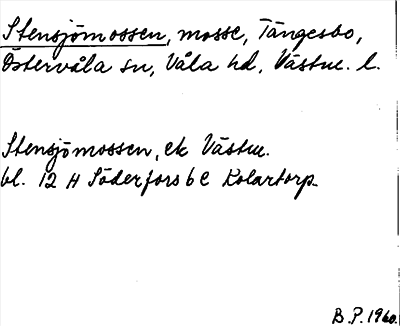 Stensjömossen, mosse, Tängesbo,
Östervåla sn, Våla hd, Västm. l.
Stensjömossen, ek Västm.
bl. 12 H Söderfors 6 C Kolartorp.
B.P. 1960.